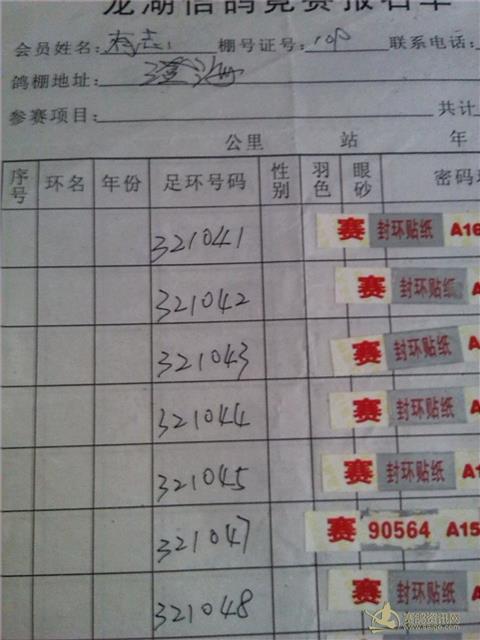 龙湖信鸽竞赛报名单
会员姓名: 棚号证号: 100 联系电话:
鸽棚地址: 澄海
参赛项目: 共计
公里 站 年
序号 环名 年份 足环号码 性别 羽色 眼砂 密码
321041 赛 封环贴纸 A16
321042 赛 封环贴纸
321043 赛 封环贴纸 A
321044 赛 封环贴纸 A
321045 赛 封环贴纸 A1
321047 赛 90564 A15
321048 赛 封环贴纸 A
赛鸽资讯网